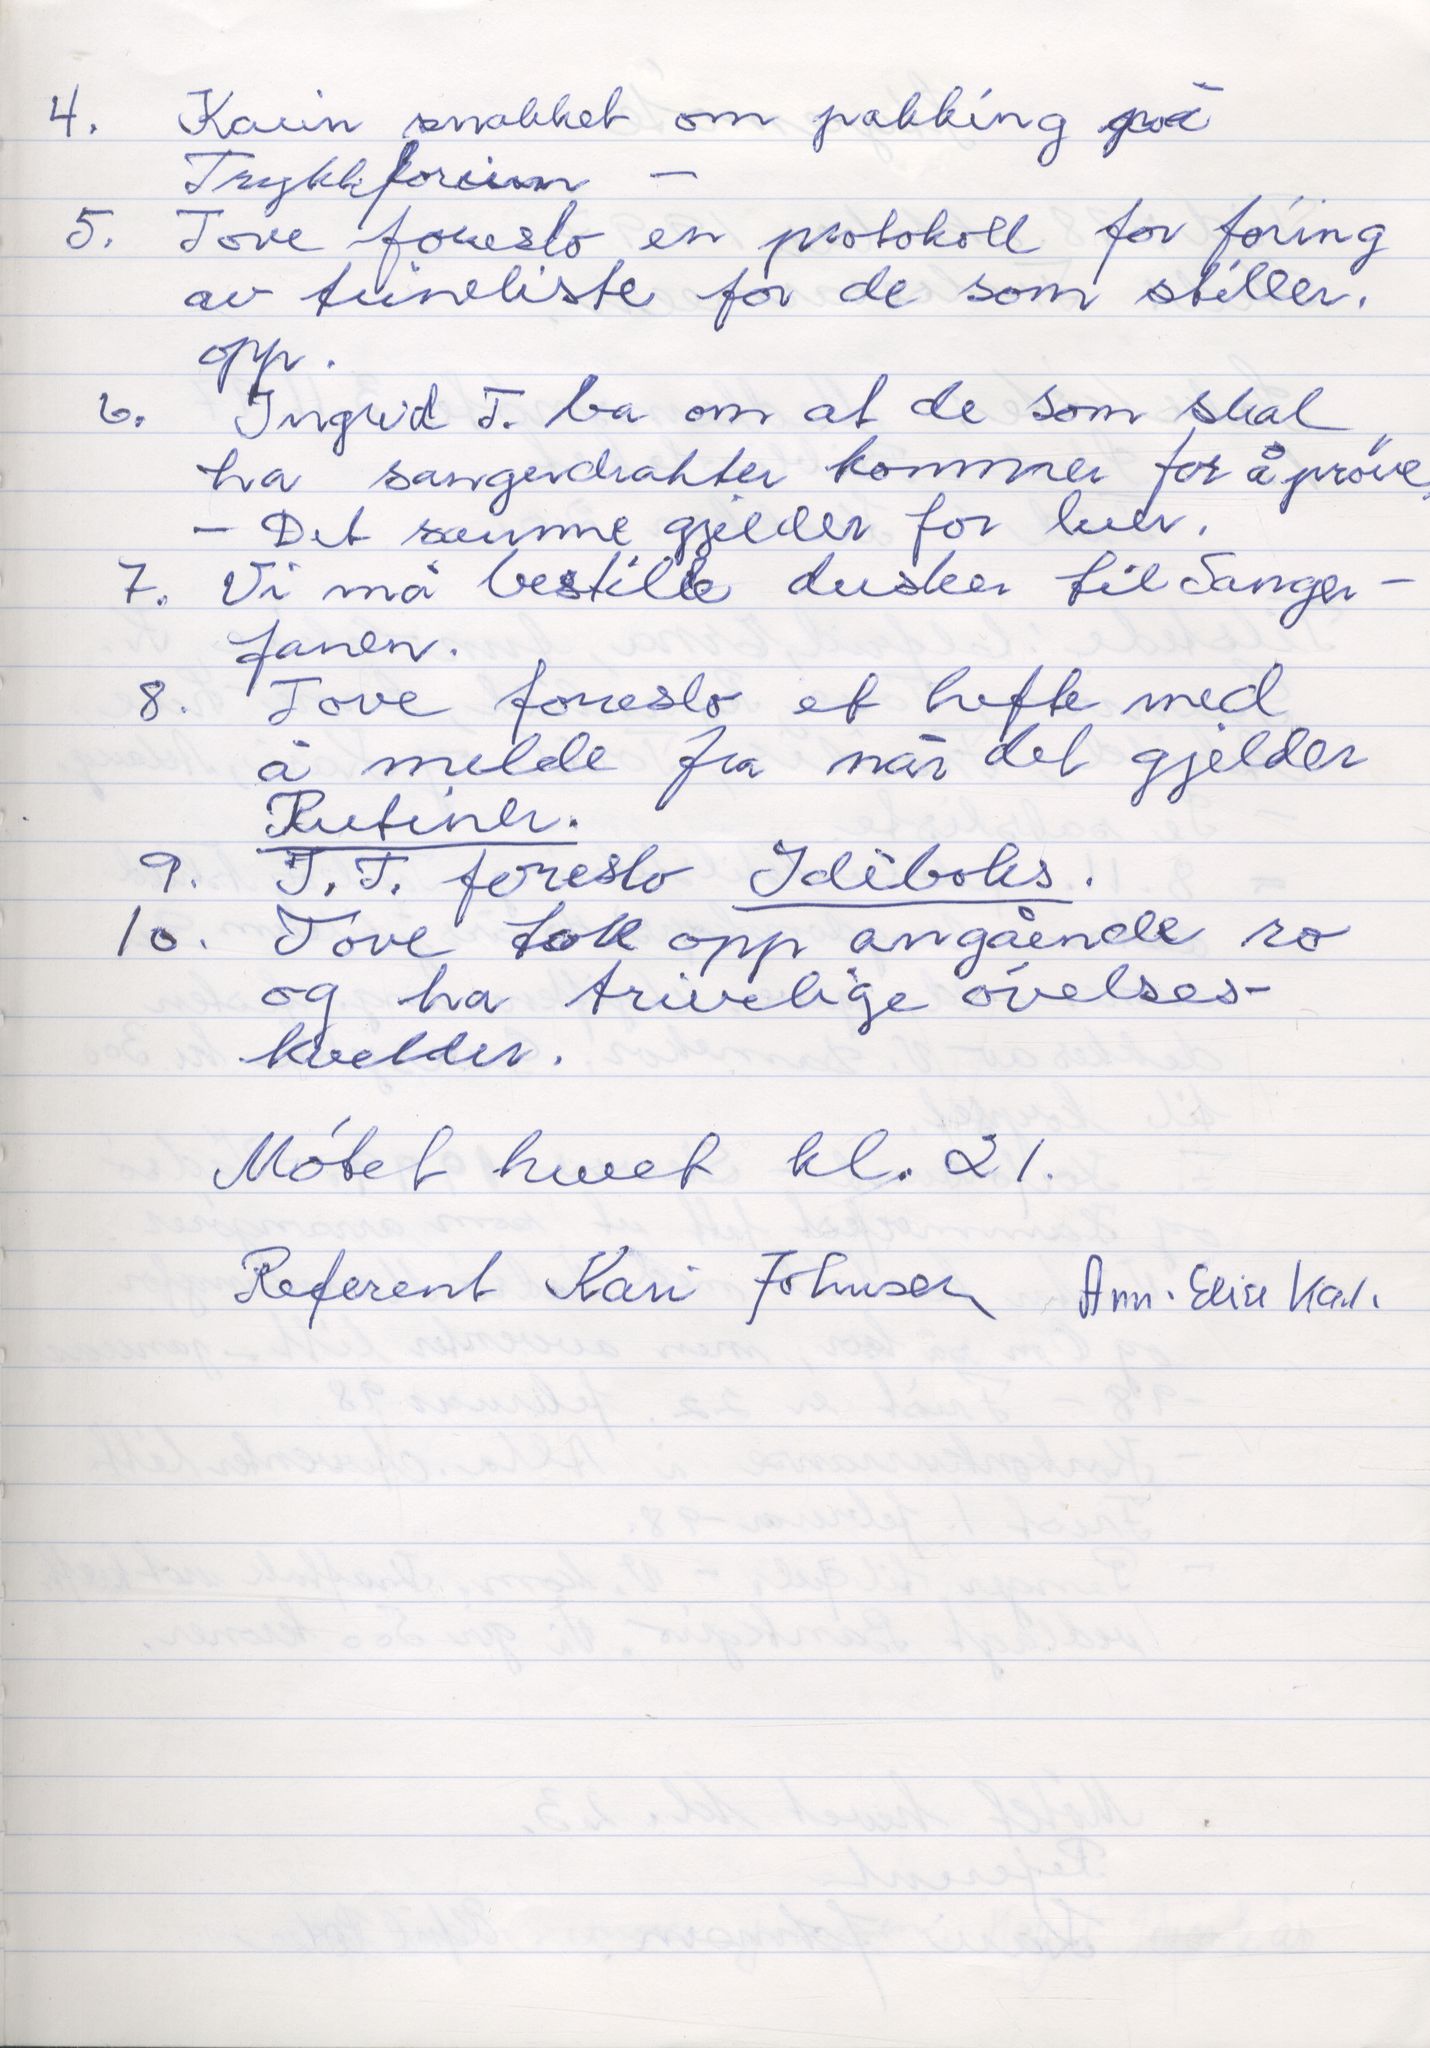 4. Karin snakket om pakking på
Trykkforum -
5. Tove foreslo en protokoll for føring
av timeliste for de som stiller.
opp.
6. Ingrid T. ba om at de som skal
ha sangerdrakter kommer for å prøve.
- Det samme gjelder for luer.
7. Vi må bestille dusker til Sanger-
fanen.
8. Tove foreslo et hefte med
å melde fra når det gjelder
Rutiner.
9. I.T. foreslo Idéboks.
10. Tove tok opp angående ro
og ha trivelige øvelses-
kvelder.
Møtet hevet kl. 21.
Referent Kari Johnsen Ann-Elise Karl.